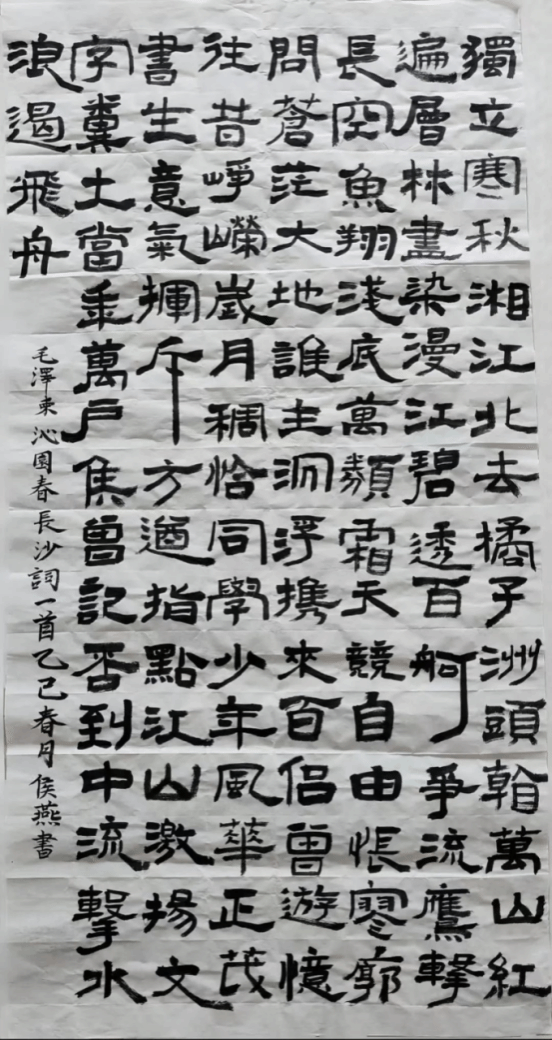 獨立寒秋湘江北去橘子洲頭萬山紅
遍層林盡染漫江碧透百舸爭流鷹擊
長空魚翔淺底萬類霜天競自由悵寥廓
問蒼茫大地誰主沉浮携來百侶曾遊憶
往昔崢嶸歲月稠恰同學少年風華正茂
書生意氣揮斥方遒指點江山激揚文
字糞土當年萬戶侯曾記否到中流擊水
浪遏飛舟
毛澤東沁園春長沙詞一首乙巳春月侯燕書